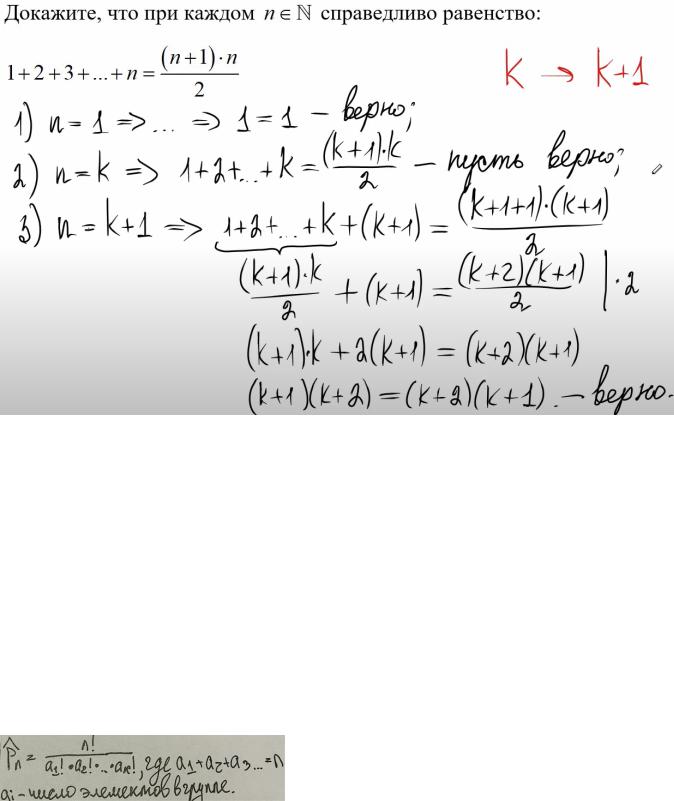 Докажите, что при каждом n ∈ ℕ справедливо равенство:
1+2+3+...+n = (n+1)·n / 2
k → k+1
1) n=1 => ... => 1=1 – верно;
2) n=k => 1+2+...+k = (k+1)·k / 2 – пусть верно;
3) n=k+1 => 1+2+...+k+(k+1) = (k+1+1)·(k+1) / 2
(k+1)·k / 2 + (k+1) = (k+2)(k+1) / 2 |·2
(k+1)·k + 2(k+1) = (k+2)(k+1)
(k+1)(k+2) = (k+2)(k+1). – верно.
P̂n = n! / a1!·a2!·...·ак!, где a1+a2+a3...=n
ai – число элементов в группе.